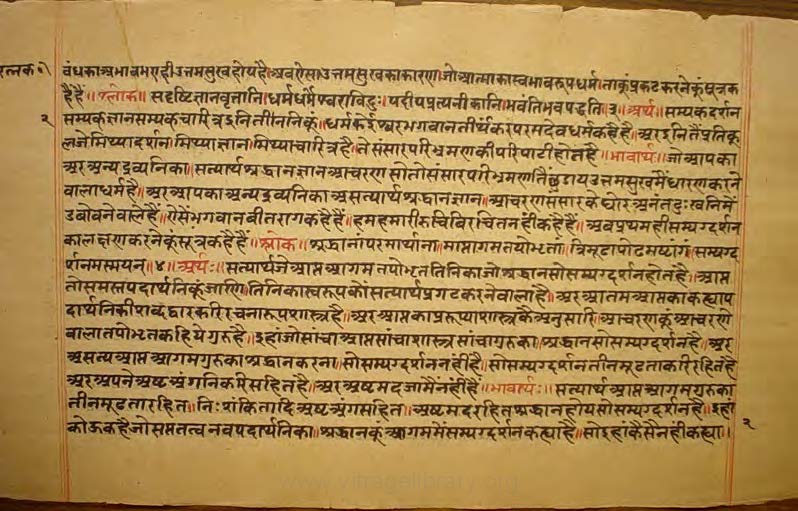 रत्नक॰
वंधकाअभावमएहीउत्तमसुखहोयहै॥अवऐसाउत्तमसुखकाकारण॥जोआत्माकास्वभावरूपधर्म॥ताकूंप्रकटकरनेकूंसूत्रक
हैहै॥श्लोक॥सदृष्टिज्ञानवृत्तानि॥धर्मंधर्मेश्वराविदुः॥यदीयप्रत्यनीकानि॥भवंतिभवपद्धतिः॥३॥अर्थ॥सम्यकदर्शन
२
सम्यकज्ञानसम्यकचारित्रइनितीननिकूं॥धर्मकेईश्वरभगवानतीर्थंकरपरमदेवधर्मकहैहै॥अरइनितैंप्रतिकू
लजेमिथ्यादर्शन॥मिथ्याज्ञान॥मिथ्याचारित्रहै॥तेसंसारपरिभ्रमणकीपरिपाटीहोतहै॥भावार्थ॥जोआपका
अरअन्यद्रव्यनिका॥सत्यार्थश्रद्धानज्ञानआचरणसोतोसंसारपरिभ्रमणतैंछुडायउत्तमसुखमेंधारणकरने
वालाधर्महै॥अरआपकाअन्यद्रव्यनिकाअसत्यार्थश्रद्धानज्ञान॥आचरणसंसारकेघोरअनंतदुःखनिमें
डबोवनेवालेहैं॥ऐसैंभगवानवीतरागकहैहैं॥हमहमारीरुचिविरचितनहींकहैहैं॥अवप्रथमहीसम्यग्दर्शन
कालक्षणकरनेकूंसूत्रकहैहैं॥श्लोक॥श्रद्धानंपरमार्थानां॥माप्तागमतपोभृतां॥त्रिमूढापोढमष्टांगं॥सम्यग्द
र्शनमस्मयम्॥४॥अर्थः॥सत्यार्थजेआप्तआगमतपोभृततिनिकाजोश्रद्धानसोसम्यग्दर्शनहोतहै॥आप्त
तोसमस्तपदार्थनिकूंजाणि॥तिनिकास्वरूपकोंसत्यार्थप्रगटकरनेवालाहै॥अरआगमआप्तकाकह्याप
दार्थनिकीशब्दद्वारकरिरचनारूपशास्त्रहै॥अरआप्तकाप्ररूप्याशास्त्रकैअनुसारि॥आचरणकूंआचरणे
वालातपोभृतकहियेगुरुहै॥इहांजोसांचाआप्तसांचाशास्त्रसांचागुरुका॥श्रद्धानसोसम्यग्दर्शनहै॥अर
असत्यआप्तआगमगुरुकाश्रद्धानकरना॥सोसम्यग्दर्शननहीहै॥सोसम्यग्दर्शनतीनमूढताकरिरहितहै
अरअपनेअष्टअंगनिकरिसहितहै॥अरअष्टमदजामैनहींहै॥भावार्थः॥सत्यार्थआप्तआगमगुरुका
तीनमूढतारहित॥निःशंकितादिअष्टअंगसहित॥अष्टमदरहितश्रद्धानहोयसोसम्यग्दर्शनहै॥इहां
कोऊकहैजोसप्ततत्वनवपदार्थनिका॥श्रद्धानकूंआगममेंसम्यग्दर्शनकह्याहै॥सोइहांकैसैनहींकह्या॥
२
www.vitragelibrary.org